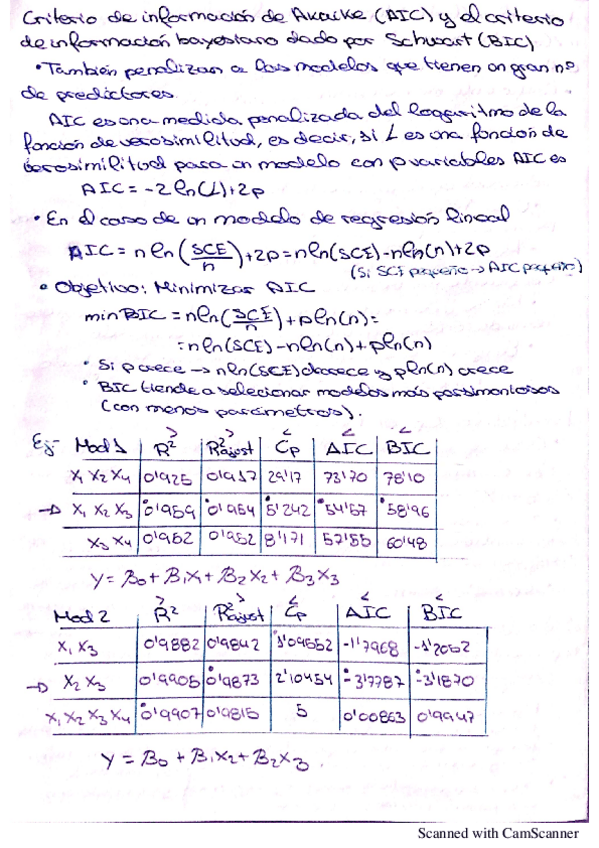 Criterio de información de Akaike (AIC) y el criterio
de información bayesiano dado por Schwart (BIC)
• También penalizan a los modelos que tienen un gran nº
de predictores.
AIC es una medida penalizada del logaritmo de la
función de verosimilitud, es decir, si L es una función de
verosimilitud para un modelo con p variables AIC es
AIC = -2 ln(L)+2p
• En el caso de un modelo de regresión lineal
AIC = n ln (SCE/n) + 2p = n ln(SCE) - n ln(n) + 2p
(Si SCE pequeño → AIC pequeño)
• Objetivo: Minimizar AIC
min BIC = n ln(SCE/n) + p ln(n) =
= n ln(SCE) - n ln(n) + p ln(n)
• Si p crece → n ln(SCE) decrece y p ln(n) crece
• BIC tiende a selecionar modelos más parsimoniosos
(con menos parámetros).
Ej- Mod 1 > R² > R²ajust < Cp < AIC < BIC
X₁ X₂ X₄ 0'925 0'917 29'17 73'70 78'10
→ X₁ X₂ X₃ 0'959 0'954 5'242 54'57 58'96
X₃ X₄ 0'952 8'171 57'55 60'48
Y = B₀ + B₁X₁ + B₂X₂ + B₃X₃
Mod 2 > R² > R²ajust < Cp < AIC < BIC
X₁ X₃ 0'9882 0'9842 -1'7968
→ X₂ X₃ 0'9905 0'9873 2'10454 -3'7787 -3'1870
X₁ X₂ X₃ X₄ 0'9907 0'9815 5 0'00863 0'9947
Y = B₀ + B₁X₂ + B₂X₃.
Scanned with CamScanner